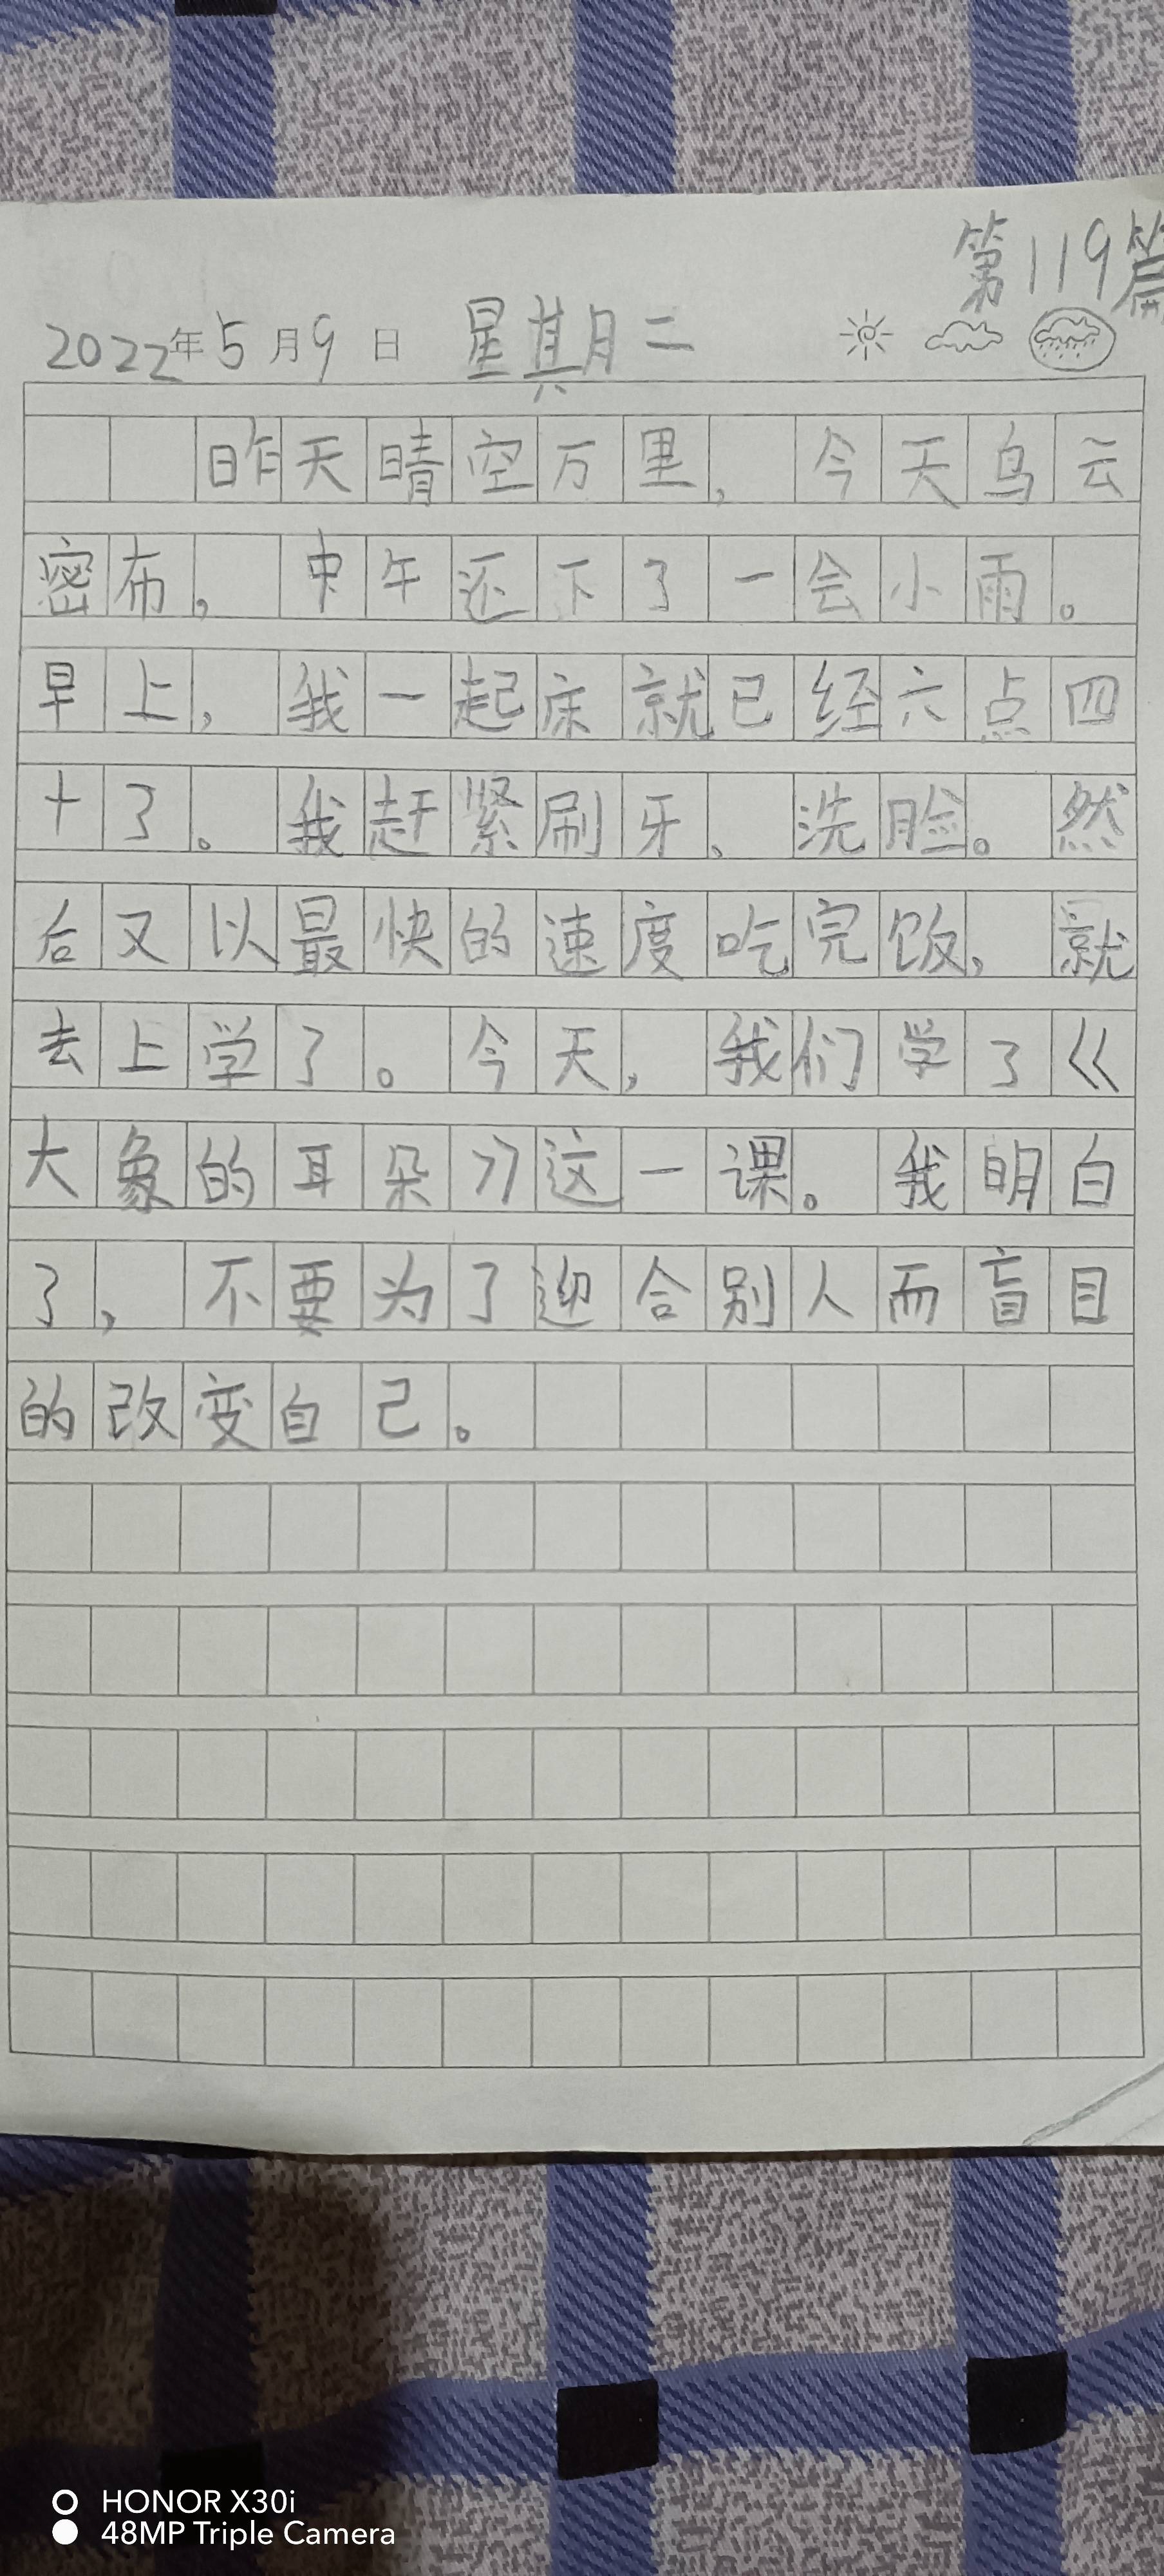 第119篇
2022年5月9日 星期二
昨天晴空万里,今天乌云
密布,中午还下了一会小雨。
早上,我一起床就已经六点四
十了。我赶紧刷牙、洗脸。然
后又以最快的速度吃完饭,就
去上学了。今天,我们学了《
大象的耳朵》这一课。我明白
了,不要为了迎合别人而盲目
的改变自己。
HONOR X30i
48MP Triple Camera